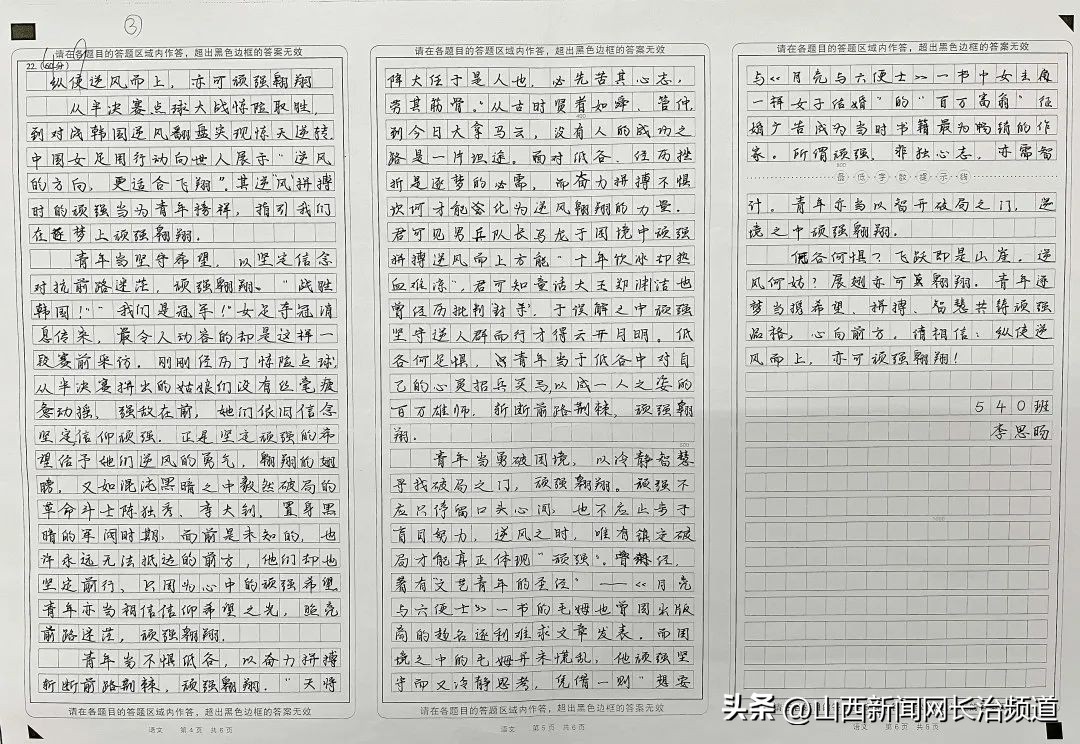 ③
请在各题目的答题区域内作答，超出黑色边框的答案无效
22.（60分）
纵使逆风而上，亦可顽强翱翔
从半决赛点球大战惊险取胜，
到对战韩国逆风翻盘实现惊天逆转，
中国女足用行动向世人展示“逆风
的方向，更适合飞翔”。其逆“风”拼搏
时的顽强当为青年榜样，指引我们
在逐梦上顽强翱翔。
青年当坚守希望，以坚定信念
对抗前路迷茫，顽强翱翔。“战胜
韩国！”“我们是冠军！”女足夺冠消
息传来，最令人动容的却是这样一
段赛前采访。刚刚经历了惊险点球，
从半决赛拼出的姑娘们没有丝毫疲
惫动摇，强敌在前，她们依旧信念
坚定，信仰顽强。正是坚定顽强的希
望给予她们逆风的勇气，翱翔的翅
膀。又如混沌黑暗之中毅然破局的
革命斗士陈独秀、李大钊。置身黑
暗的军阀时期，面前是未知的，也
许永远无法抵达的前方，他们却也
坚定前行、只因为心中的顽强希望。
青年亦当相信信仰希望之光，照亮
前路迷茫，顽强翱翔。
青年当不惧低谷，以奋力拼搏
斩断前路荆棘，顽强翱翔。“天将
请在各题目的答题区域内作答，超出黑色边框的答案无效
语文 第4页 共6页
请在各题目的答题区域内作答，超出黑色边框的答案无效
降大任于是人也，必先苦其心志，
劳其筋骨。”从古时贤者如舜、管仲，
400
到今日大拿马云，没有人的成功之
路是一片坦途。面对低谷、经历挫
折是逐梦的必需，而奋力拼搏不惧
坎坷才能容化为逆风翱翔的力量。
君可见男乒队长马龙于困境中顽强
拼搏逆风而上方能“十年饮冰却热
血难凉”，君可知童话大王郑渊洁也
曾经历批判封杀，于误解之中顽强
坚守逆人群而行才得云开月明。低
谷何足惧，青年当于低谷中对自
己的心灵招兵买马，以成一人之姿的
百万雄师，斩断前路荆棘，顽强翱
翔。
600
青年当勇破困境，以冷静智慧
寻找破局之门，顽强翱翔。顽强不
应只停留口头心间，也不应止步于
盲目努力，逆风之时，唯有镇定破
局才能真正体现“顽强”。曾经，
著有文艺青年的圣经”——《月亮
与六便士》一书的毛姆也曾因出版
商的趋名逐利难求文章发表。而困
境之中的毛姆并未慌乱，他顽强坚
守而又冷静思考，凭借一则“想要
请在各题目的答题区域内作答，超出黑色边框的答案无效
语文 第5页 共6页
请在各题目的答题区域内作答，超出黑色边框的答案无效
与《月亮与六便士》一书中女主角
一样女子结婚”的“百万富翁”征
婚广告成为当时书籍最为畅销的作
家。所谓顽强，非独心志，亦需智
800
最低字数提示线
计。青年亦当以智开破局之门，逆
境之中顽强翱翔。
低谷何惧？飞跃即是山崖。逆
风何妨？展翅亦可翱翔。青年逐
梦当携希望、拼搏、智慧共铸顽强
品格，心向前方。请相信：纵使逆
风而上，亦可顽强翱翔！
540班
李思旸
1000
请在各题目的答题区域内作答，超出黑色边框的答案无效
语文 第6页 共6页
头条 @山西新闻网长治频道